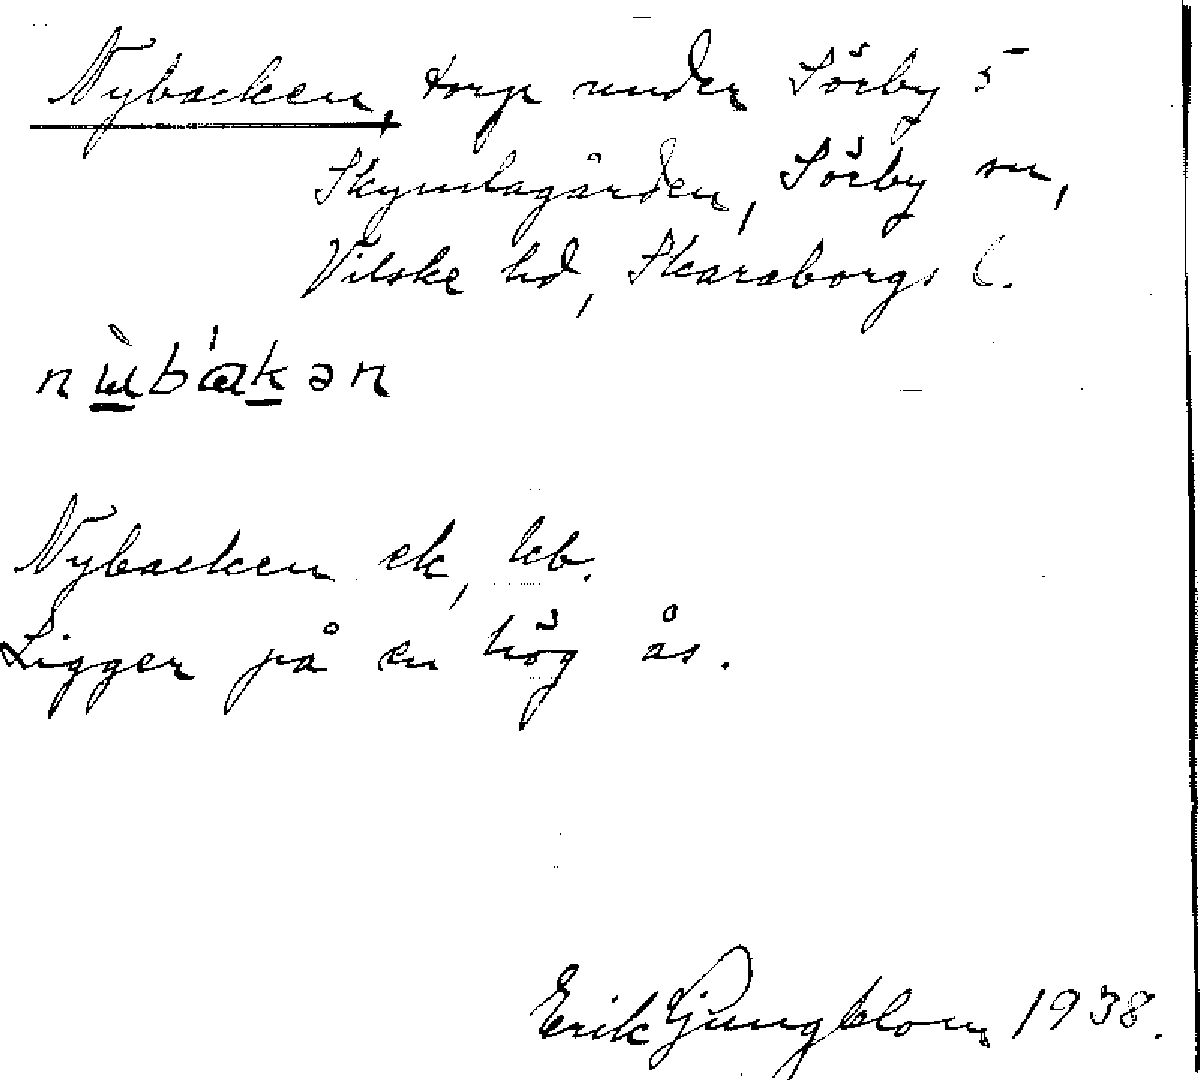 Nybacken, torp under Sörby 5
Skymlagården, Sörby sn,
Vilske hd, Skaraborgs l.
Nybacken ek, kb.
Ligger på en hög ås.
Erik Ljungblom 1938.